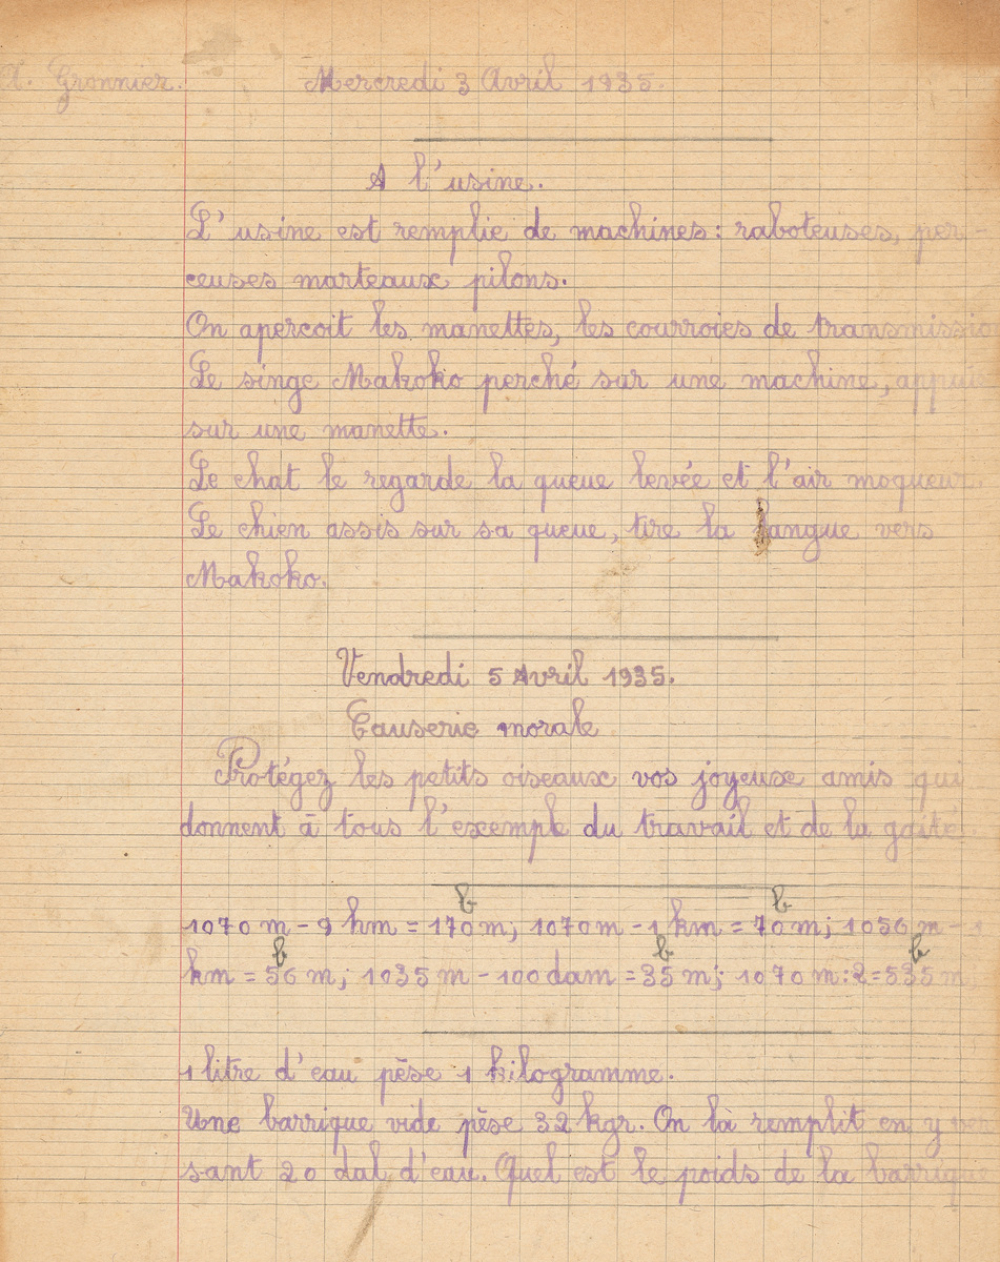 A. Gronnier. Mercredi 3 Avril 1935.
A l'usine.
L'usine est remplie de machines : raboteuses, per-
ceuses marteaux pilons.
On apercoit les manettes, les courroies de transmissio
Le singe Makoko perché sur une machine, appuie
sur une manette.
Le chat le regarde la queue levée et l'air moqueur.
Le chien assis sur sa queue, tire la langue vers
Makoko.
Vendredi 5 Avril 1935.
Causerie morale
Protégez les petits oiseaux vos joyeux amis qui
donnent à tous l'exemple du travail et de la gaité
b b
1070 m - 9 hm = 170 m; 1070 m - 1 km = 70 m; 1056 m - 1
b b b
km = 56 m; 1035 m - 100 dam = 35 m; 1070 m : 2 = 535 m
1 litre d'eau pèse 1 kilogramme.
Une barrique vide pèse 32 kgr. On là remplit en y ver
sant 20 dal d'eau. Quel est le poids de la barrique